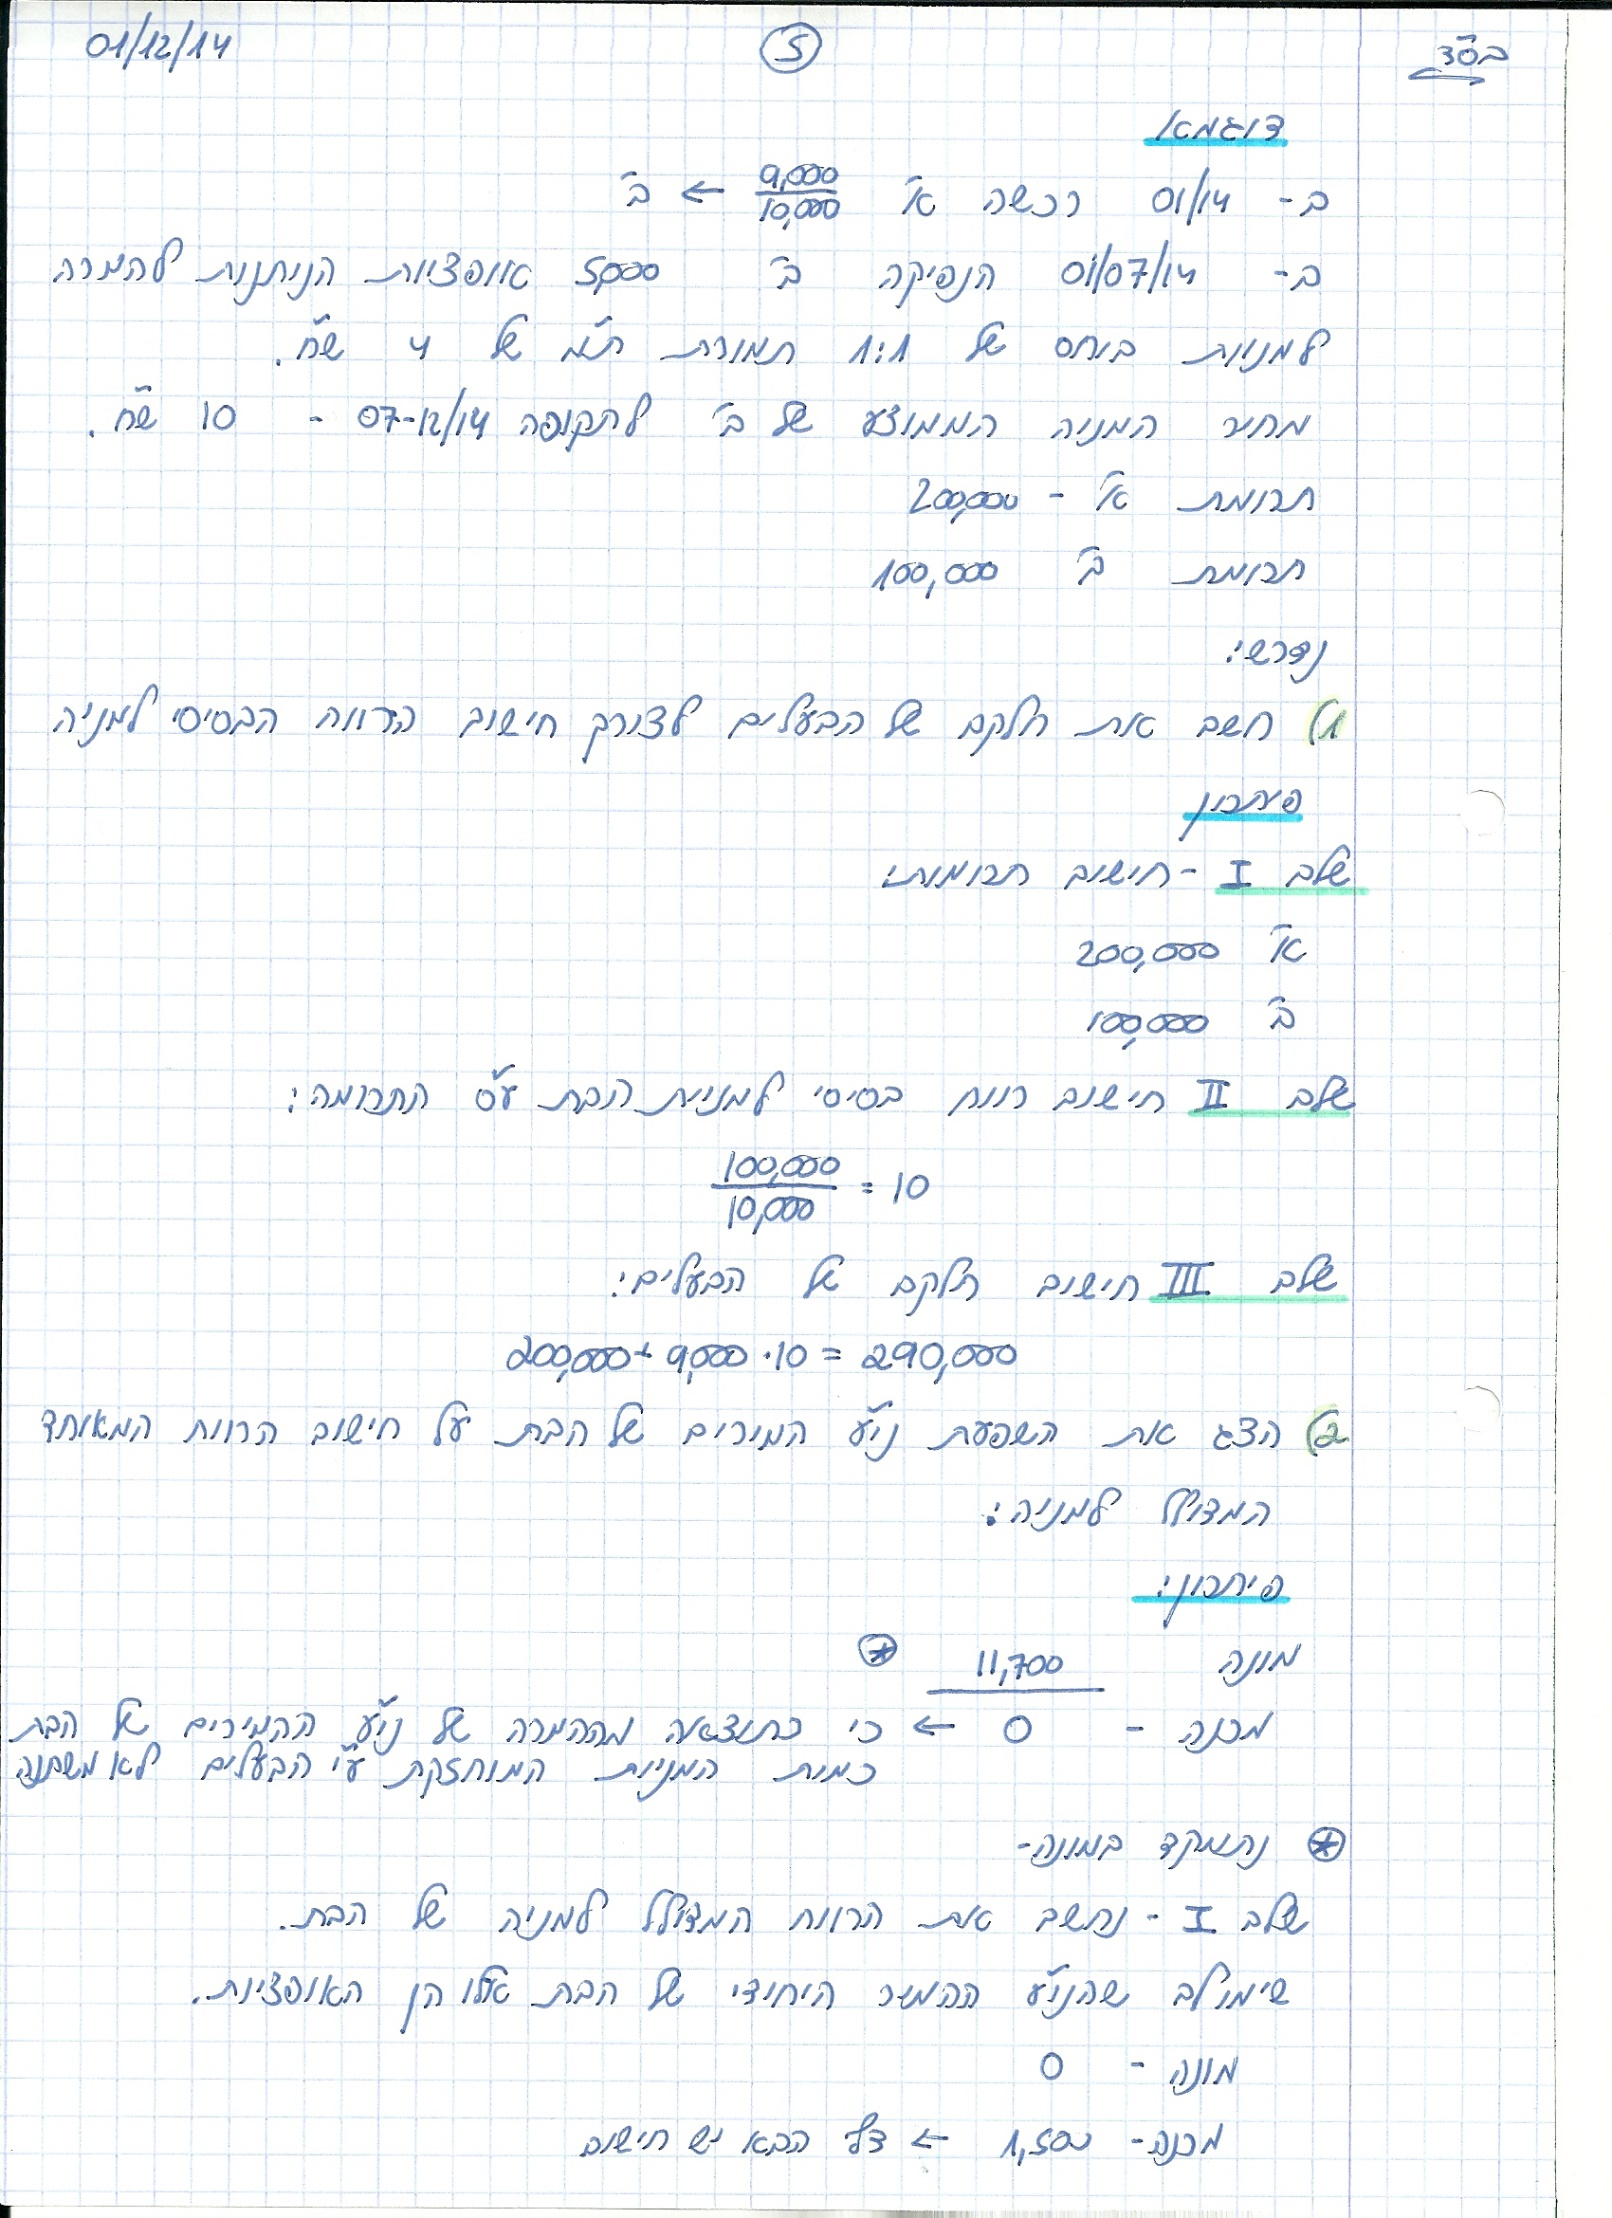 בס"ד
5
01/12/14
דוגמא
ב- 01/14 רכשה א' 9,000/10,000 ← ב'
ב- 01/07/14 הנפיקה ב' 5,000 אופציות הניתנות להמרה
למניות ביחס של 1:1 תמורת ת"מ של 4 ש"ח.
מחיר המניה הממוצע של ב' לתקופה 07-12/14 - 10 ש"ח.
תרומת א' - 200,000
תרומת ב' 100,000
נדרש:
1) חשב את חלקם של הבעלים לצורך חישוב הרווח הבסיסי למניה
פיתרון
שלב I - חישוב תרומות:
א' 200,000
ב' 100,000
שלב II חישוב רווח בסיסי למניית הבת ע"ס התרומה:
100,000/10,000 = 10
שלב III חישוב חלקם של הבעלים:
200,000 + 9,000 · 10 = 290,000
2) הצג את השפעת ני"ע המירים של הבת על חישוב הרווח המאוחד
המדולל למניה:
פיתרון:
מונה 11,700 *
מכנה - 0 ← כי כתוצאה מההמרה של ני"ע ההמירים של הבת
כמות המניות המוחזקת ע"י הבעלים לא משתנה
* נתמקד במונה-
שלב I - נחשב את הרווח המדולל למניה של הבת.
שימו לב שהני"ע ההמיר היחודי של הבת אלו הן האופציות.
מונה - 0
מכנה - 1,500 ← דף הבא יש חישוב